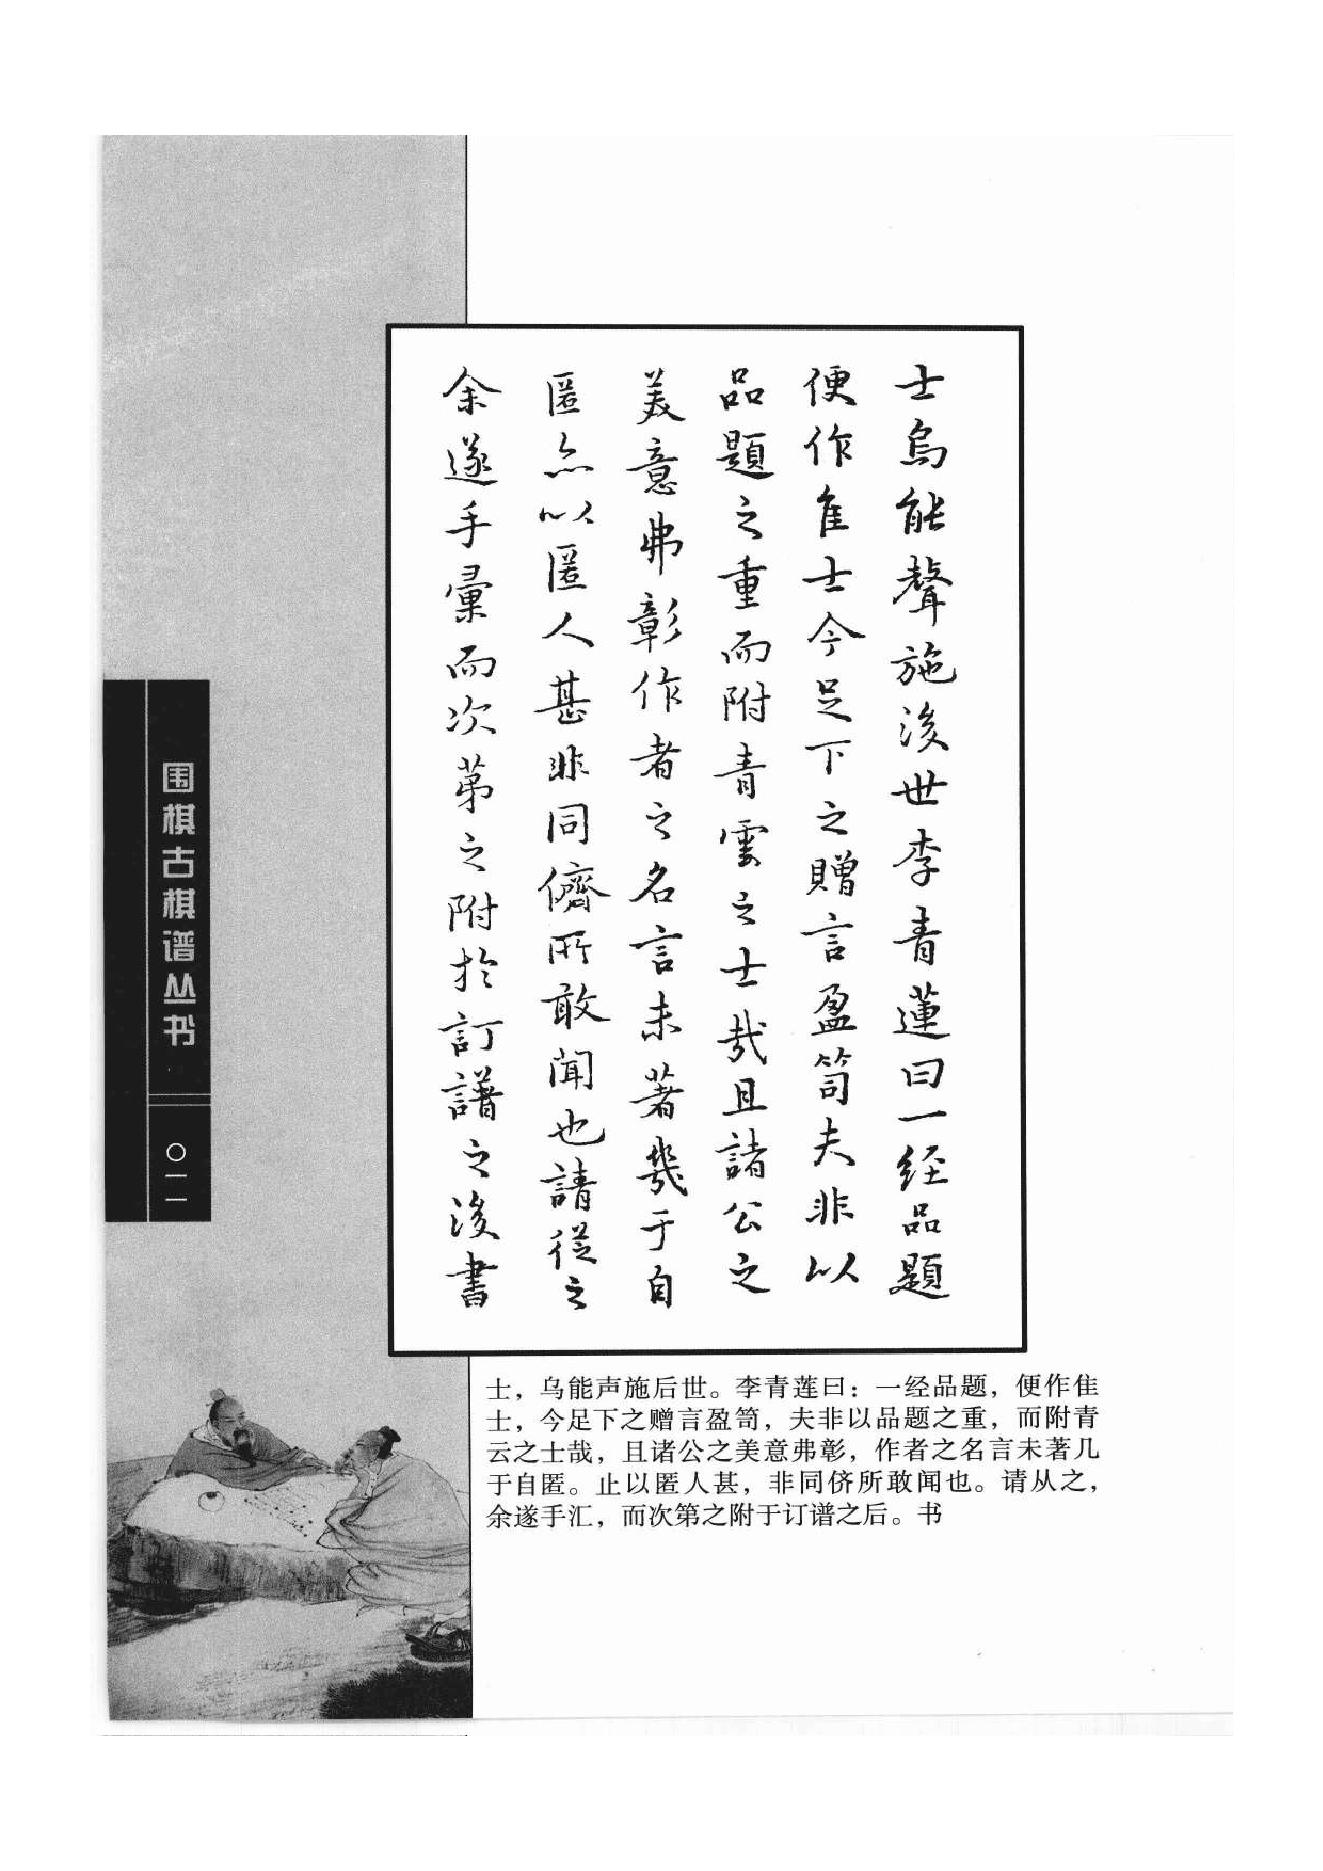 士烏能聲施後世李青蓮曰一经品題
便作隹士今足下之贈言盈笥夫非以
品題之重而附青雲之士哉且諸公之
美意弗彰作者之名言未著幾于自
匿亦以匿人甚非同儕所敢聞也請從之
余遂手彙而次第之附於訂譜之後書
围棋古棋谱丛书
〇一一
士，乌能声施后世。李青莲曰：一经品题，便作隹
士，今足下之赠言盈笥，夫非以品题之重，而附青
云之士哉，且诸公之美意弗彰，作者之名言未著几
于自匿。止以匿人甚，非同侪所敢闻也。请从之，
余遂手汇，而次第之附于订谱之后。书